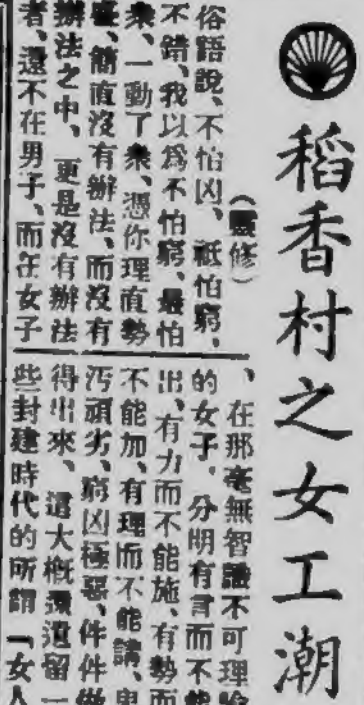 稻香村之女工潮
（靈修）
俗語說、不怕凶、祗怕窮、
不錯、我以爲不怕窮、最怕
衆、一動了衆、憑你理直勢
、簡直沒有辦法、而沒有
辦法之中、更是沒有辦法
者、還不在男子、而在女子
、在那毫無智識不可理
的女子、分明有言而不能
出、有力而不能施、有勢而
不能加、有理而不能講、
汚頑劣、窮凶極惡、件件做
得出來、這大概還遺留一
些封建時代的所謂「女人